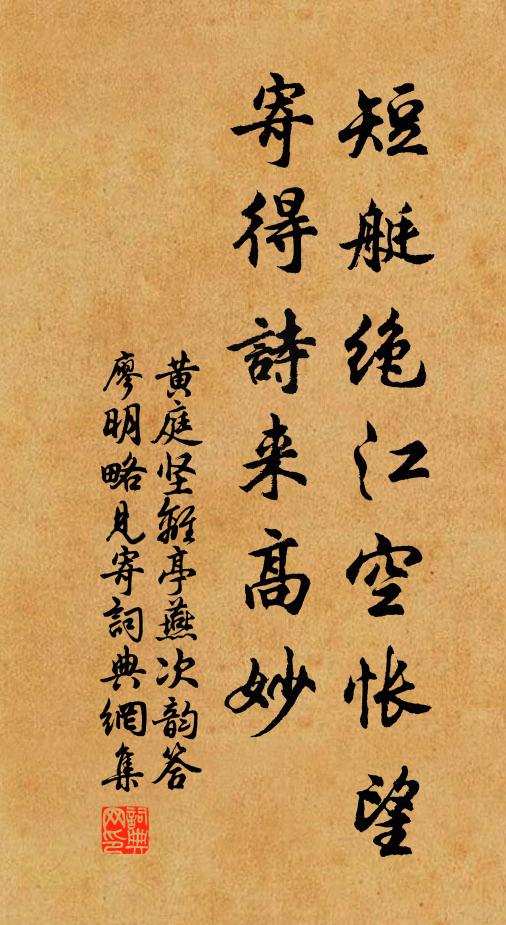 短艇绝江空怅望
寄得詩来高妙
黄庭坚離亭燕次韵答
廖明略见寄詞典網集
詞典
网印